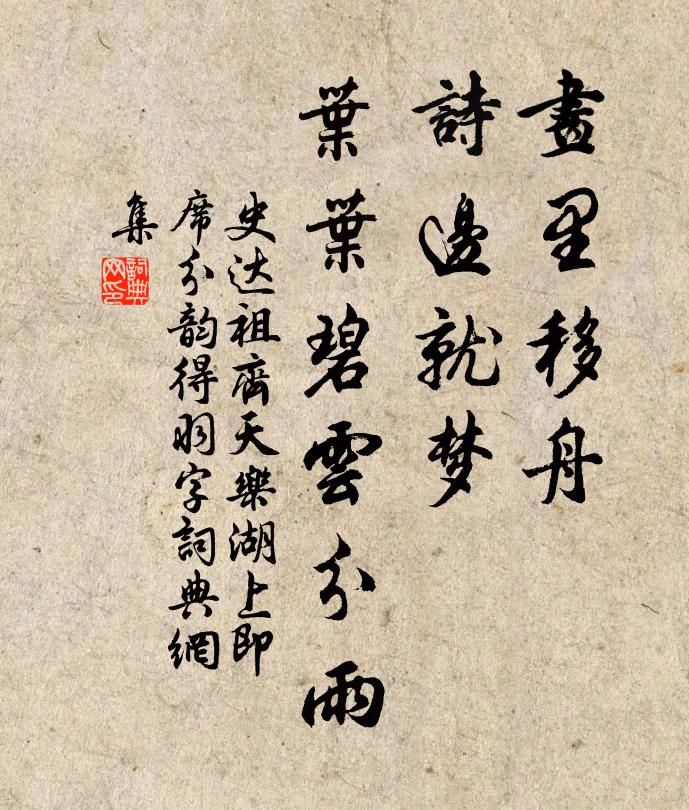 畫里移舟
詩邊就梦
葉葉碧雲分雨
史达祖齊天樂湖上即
席分韵得羽字詞典網
集
詞典
网印